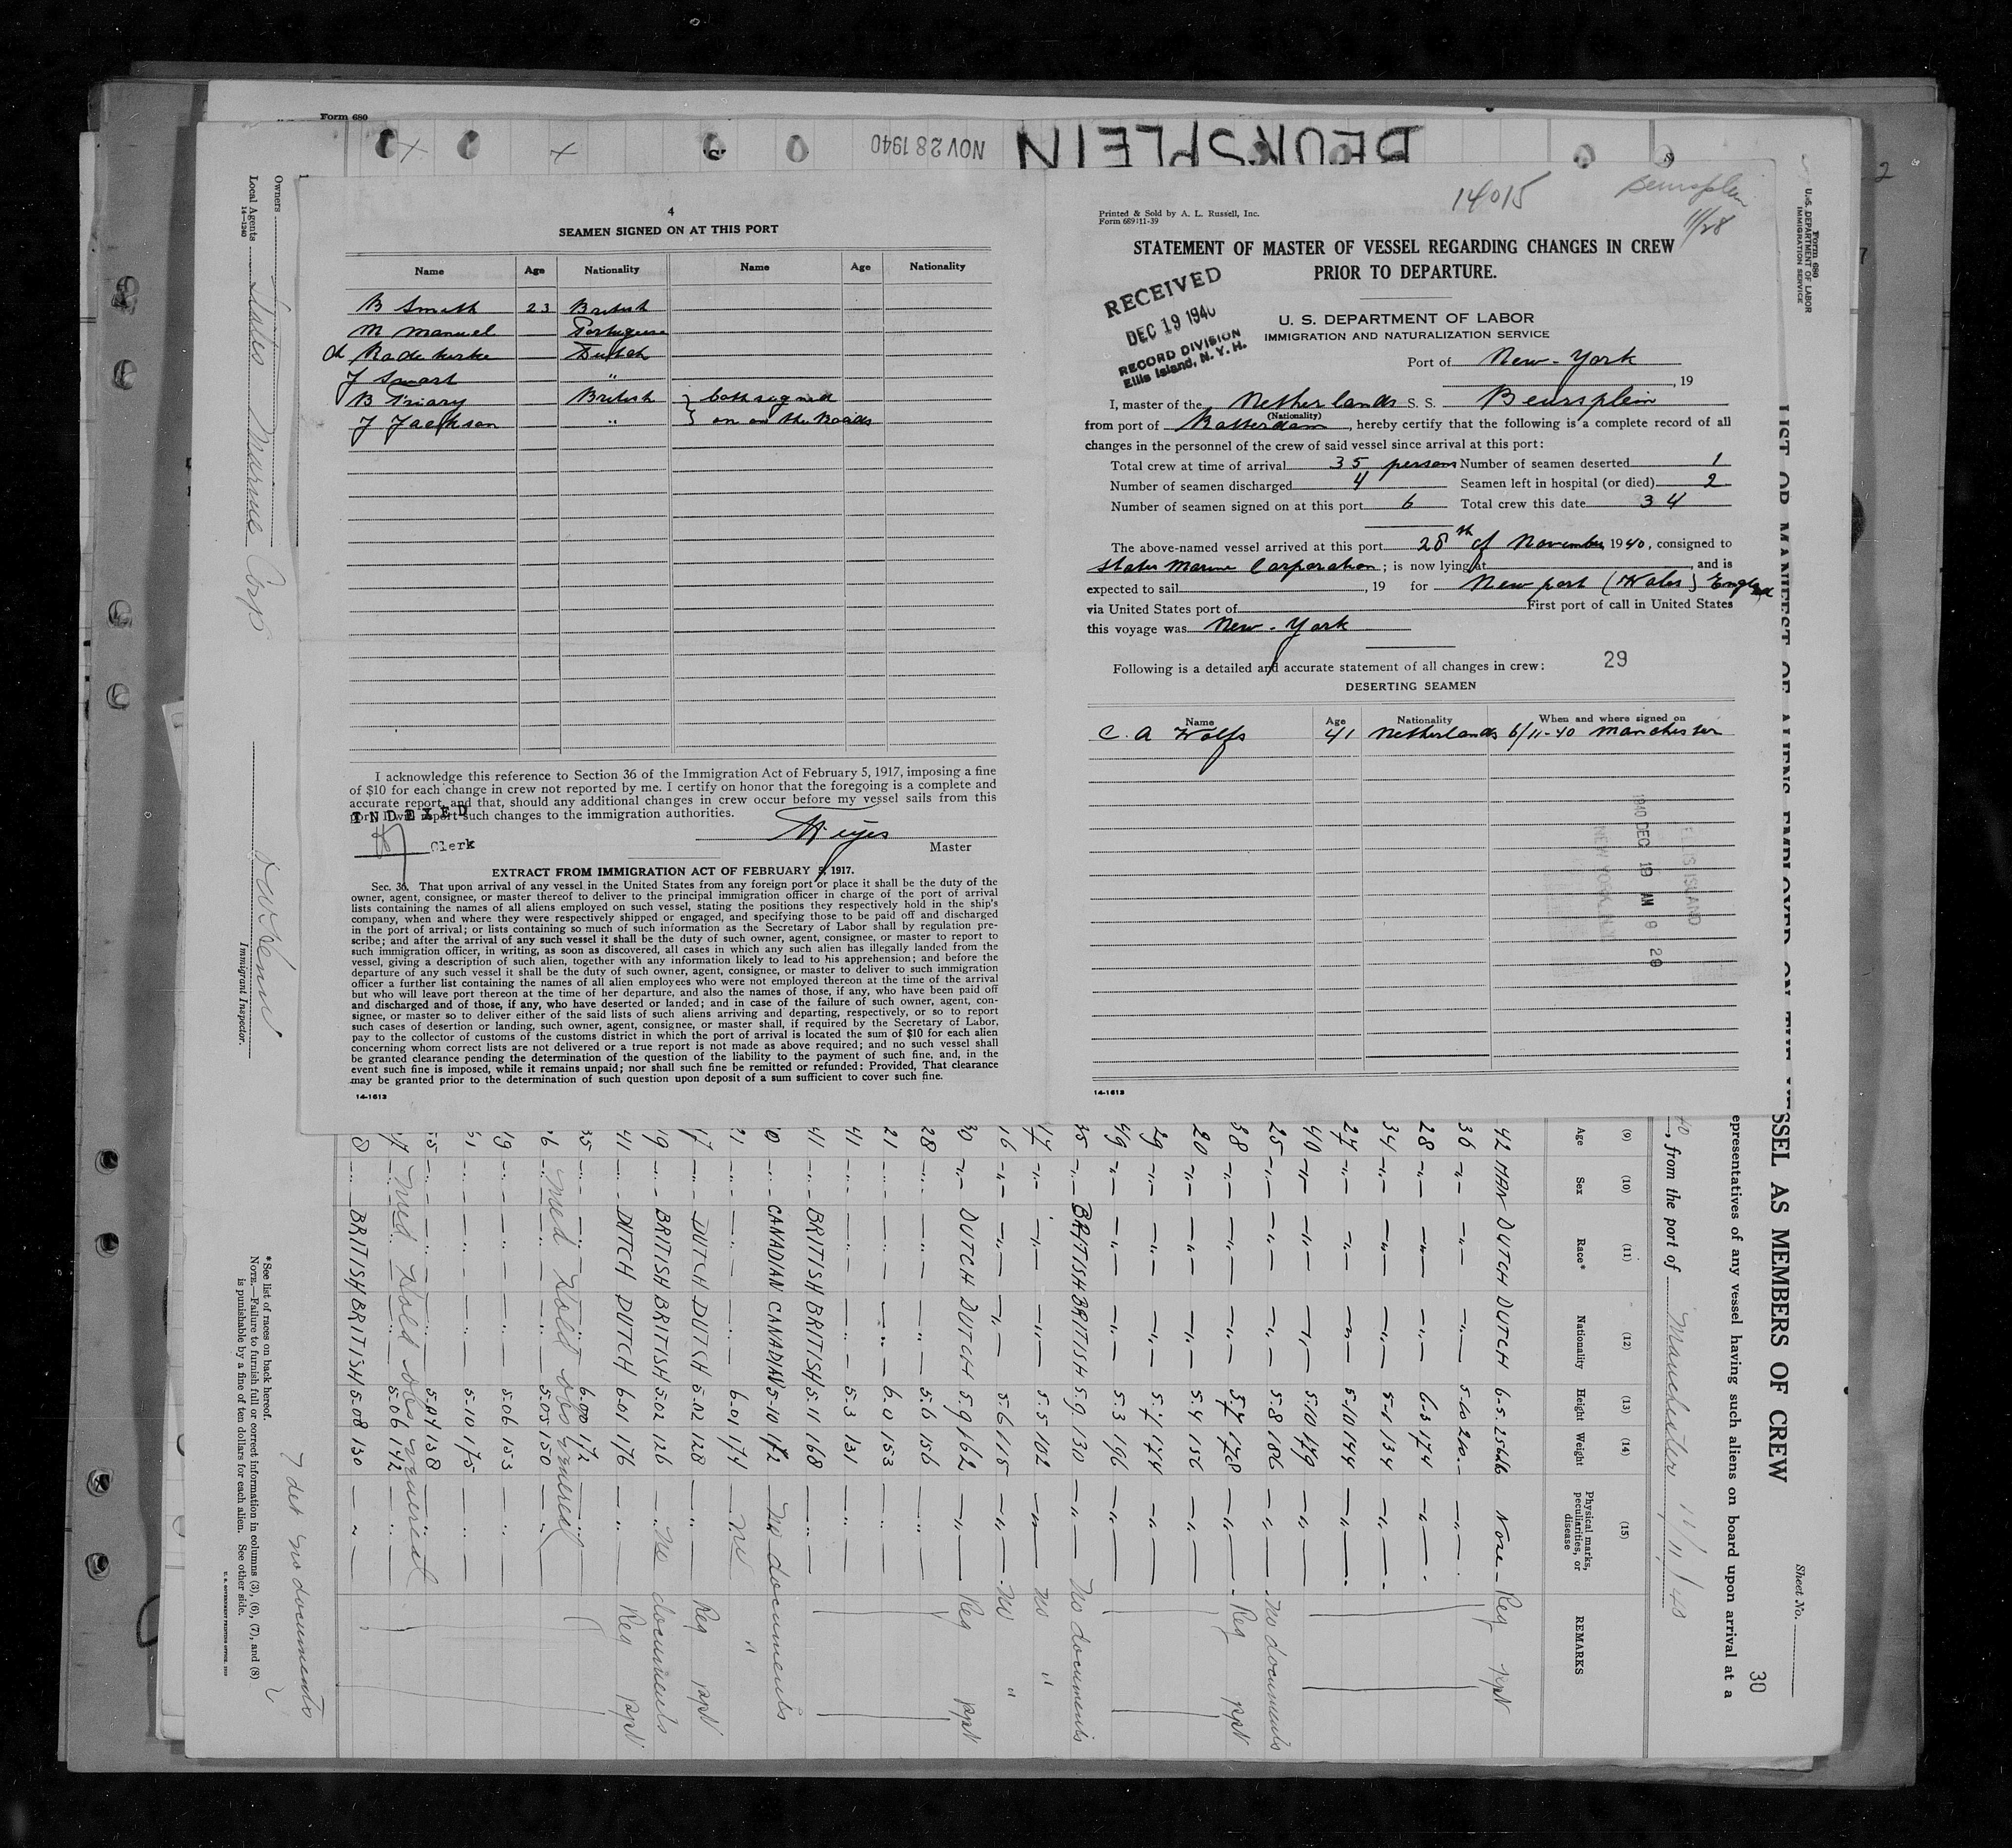 Form 680
NOV 28 1940
BEURSPLEIN
4
SEAMEN SIGNED ON AT THIS PORT
Name Age Nationality Name Age Nationality
B Smith 23 British
M Manuel Portuguese
Dutch
J Smart "
B Friary British } both signed
J Jackson " } on on the Roads
I acknowledge this reference to Section 36 of the Immigration Act of February 5, 1917, imposing a fine
of $10 for each change in crew not reported by me. I certify on honor that the foregoing is a complete and
accurate report, and that, should any additional changes in crew occur before my vessel sails from this
port, I will report such changes to the immigration authorities.
INDEXED
Clerk
Master
EXTRACT FROM IMMIGRATION ACT OF FEBRUARY 5, 1917.
Sec. 36. That upon arrival of any vessel in the United States from any foreign port or place it shall be the duty of the
owner, agent, consignee, or master thereof to deliver to the principal immigration officer in charge of the port of arrival
lists containing the names of all aliens employed on such vessel, stating the positions they respectively hold in the ship's
company, when and where they were respectively shipped or engaged, and specifying those to be paid off and discharged
in the port of arrival; or lists containing so much of such information as the Secretary of Labor shall by regulation pre-
scribe; and after the arrival of any such vessel it shall be the duty of such owner, agent, consignee, or master to report to
such immigration officer, in writing, as soon as discovered, all cases in which any such alien has illegally landed from the
vessel, giving a description of such alien, together with any information likely to lead to his apprehension; and before the
departure of any such vessel it shall be the duty of such owner, agent, consignee, or master to deliver to such immigration
officer a further list containing the names of all alien employees who were not employed thereon at the time of the arrival
but who will leave port thereon at the time of her departure, and also the names of those, if any, who have been paid off
and discharged and of those, if any, who have deserted or landed; and in case of the failure of such owner, agent, con-
signee, or master so to deliver either of the said lists of such aliens arriving and departing, respectively, or so to report
such cases of desertion or landing, such owner, agent, consignee, or master shall, if required by the Secretary of Labor,
pay to the collector of customs of the customs district in which the port of arrival is located the sum of $10 for each alien
concerning whom correct lists are not delivered or a true report is not made as above required; and no such vessel shall
be granted clearance pending the determination of the question of the liability to the payment of such fine, and, in the
event such fine is imposed, while it remains unpaid; nor shall such fine be remitted or refunded: Provided, That clearance
may be granted prior to the determination of such question upon deposit of a sum sufficient to cover such fine.
14-1613
14015
Beursplein
11/28
Printed & Sold by A. L. Russell, Inc.
Form 689 11-39
STATEMENT OF MASTER OF VESSEL REGARDING CHANGES IN CREW
PRIOR TO DEPARTURE.
RECEIVED
DEC 19 1940
RECORD DIVISION
Ellis Island, N. Y. H.
U. S. DEPARTMENT OF LABOR
IMMIGRATION AND NATURALIZATION SERVICE
Port of New-York
, 19
I, master of the Netherlands S. S. Beursplein
(Nationality)
from port of Rotterdam, hereby certify that the following is a complete record of all
changes in the personnel of the crew of said vessel since arrival at this port:
Total crew at time of arrival 35 persons Number of seamen deserted 1
Number of seamen discharged 4 Seamen left in hospital (or died) 2
Number of seamen signed on at this port 6 Total crew this date 34
The above-named vessel arrived at this port 28th of November 1940, consigned to
States Marine Corporation; is now lying at , and is
expected to sail , 19 for Newport (Wales) England
via United States port of First port of call in United States
this voyage was New-York
Following is a detailed and accurate statement of all changes in crew:
29
DESERTING SEAMEN
Name Age Nationality When and where signed on
C. A Wolfs 41 Netherlands 6/11-40 Manchester
1940 DEC 19 AM 9 20
ELLIS ISLAND
14-1613
Owners
Local Agents States Marine Corp
14-1240
Immigrant Inspector.
Form 680
U. S. DEPARTMENT OF LABOR
IMMIGRATION SERVICE
Sheet No.
30
LIST OR MANIFEST OF ALIENS EMPLOYED ON THE VESSEL AS MEMBERS OF CREW
representatives of any vessel having such aliens on board upon arrival at a
, from the port of Manchester 11/11/40
(9) (10) (11) (12) (13) (14) (15)
Age Sex Race* Nationality Height Weight Physical marks, peculiarities, or disease REMARKS
42 MAN DUTCH DUTCH 6-5. None Reg ppt
36 5-10 210
28 6-3 174
34 5-1 134
27 5-10 144
40 5.10 179
25 5.8 186 No documents
38 5.7 178 Reg ppt
20 5.4 156
29 5.7 174
49 5.3 196
35 BRITISH BRITISH 5.9. 130 No documents
17 5.5 102 No "
16 5.6 115 No "
30 DUTCH DUTCH 5.9 162 Reg ppt
28 5.6 156
21 6.0 153
41 5.3 131
41 BRITISH BRITISH 5.11 168
CANADIAN CANADIAN 5-10 172 No documents
6.01 174 No "
DUTCH DUTCH 5.02 128 Reg ppt
19 BRITISH BRITISH 5.02 126 No documents
41 DUTCH DUTCH 6.01 176 Reg ppt
35 6.00 172
5.05 150
19 5.06 153
5.10 175
5.07 138
5.06 142
BRITISH BRITISH 5.08 130
7 det no documents
* See list of races on back hereof.
NOTE.—Failure to furnish full or correct information in columns (3), (6), (7), and (8)
is punishable by a fine of ten dollars for each alien. See other side.